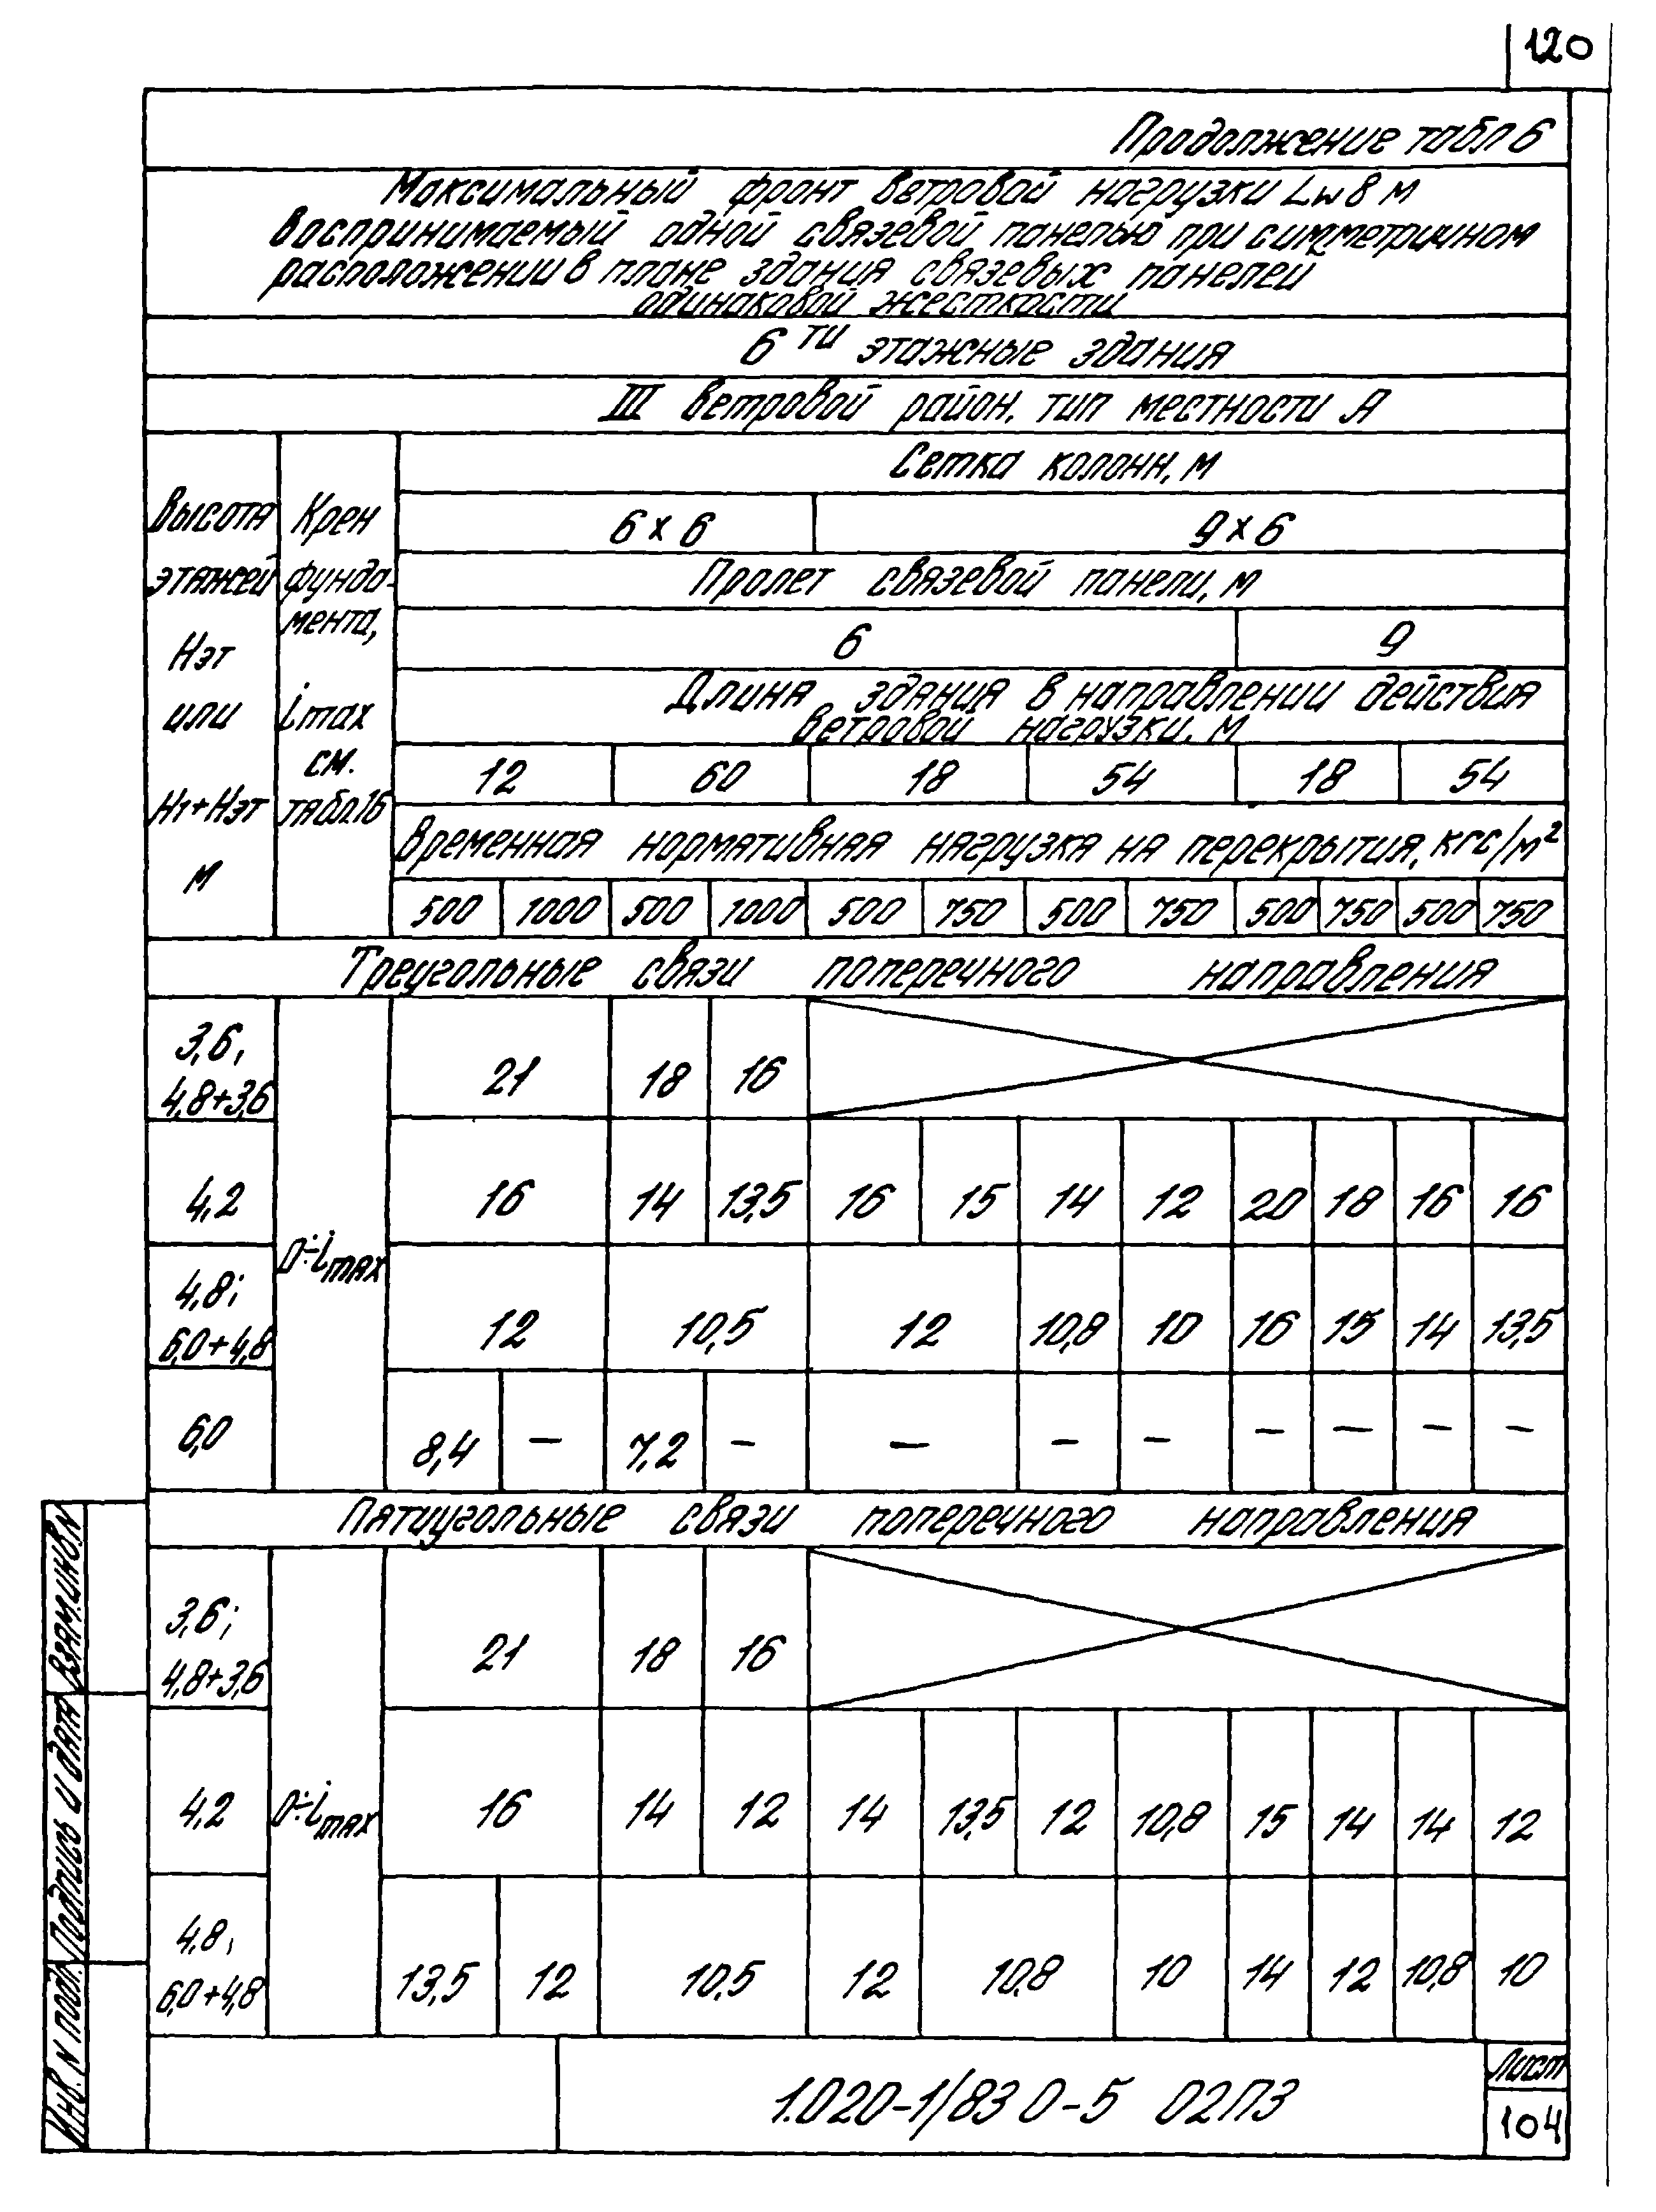 120
Продолжение табл 6
Максимальный фронт ветровой нагрузки Lw в м
воспринимаемый одной связевой панелью при симметричном
расположении в плане здания связевых панелей
одинаковой жесткости
6ти этажные здания
III ветровой район, тип местности А
Высота этажей Нэт или Н1+Нэт м
Крен фунда-мента, imax см. табл.16
Сетка колонн, м
6 х 6 9 х 6
Пролет связевой панели, м
6 9
Длина здания в направлении действия
ветровой нагрузки, м
12 60 18 54 18 54
Временная нормативная нагрузка на перекрытия, кгс/м²
500 1000 500 1000 500 750 500 750 500 750 500 750
Треугольные связи поперечного направления
3,6; 4,8+3,6 21 18 16
4,2 16 14 13,5 16 15 14 12 20 18 16 16
0÷imax
4,8; 6,0+4,8 12 10,5 12 10,8 10 16 15 14 13,5
6,0 8,4 – 7,2 – – – – – – – –
Пятиугольные связи поперечного направления
3,6; 4,8+3,6 21 18 16
4,2 0÷imax 16 14 12 14 13,5 12 10,8 15 14 14 12
4,8; 6,0+4,8 13,5 12 10,5 12 10,8 10 14 12 10,8 10
Взам.инв.N
Подпись и дата
Инв. N подл.
1.020-1/83 0-5 02ПЗ
Лист
104